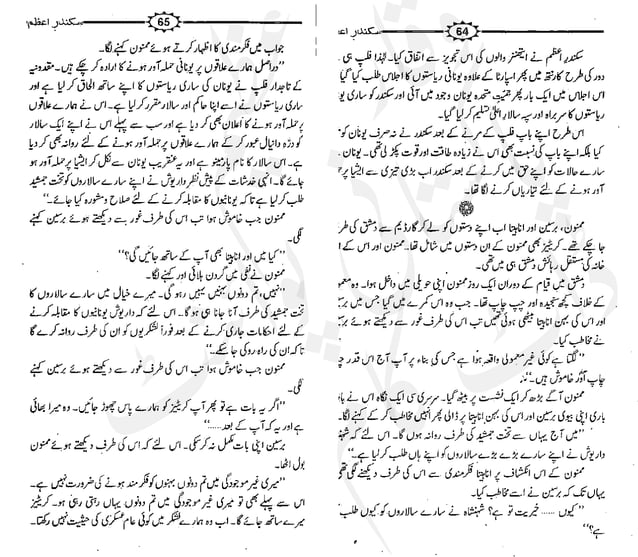 سکندرِ اعظم
64
سکندرِ اعظم نے ایتھنز والوں کی اس تجویز سے اتفاق کیا۔ لہٰذا فلپ ہی کے
دور کی طرح کارنتھ میں پھر اسپارٹا کے علاوہ یونانی ریاستوں کا اجلاس طلب کیا گیا۔
اس اجلاس میں ایک بار پھر جمعیت متحدہ یونان وجود میں آئی اور سکندر کو ساری یونانی
ریاستوں کا سربراہ اور سپہ سالار اعلیٰ تسلیم کر لیا گیا۔
اس طرح اپنے باپ فلپ کے مرنے کے بعد سکندر نے نہ صرف یونان کو
بلکہ اپنے باپ کی نسبت بھی اس نے زیادہ طاقت اور قوت پکڑ لی تھی۔ یونان
سارے حالات کو اپنے حق میں کرنے کے بعد سکندر اب بڑی تیزی سے ایشیا پر حملہ
آور ہونے کے لئے تیاریاں کرنے لگا تھا۔
ممنون، برسین اور انابیتا اب اپنے دستوں کو لے کر گارڈیم سے دمشق کی طرف
جا چکے تھے۔ کریٹیز بھی ممنون کے ان دستوں میں شامل تھا۔ ممنون اور اس کے اہل
خانہ کی مستقل رہائش دمشق ہی میں تھی۔
دمشق میں قیام کے دوران ایک روز ممنون اپنی حویلی میں داخل ہوا۔ وہ
کے خلاف کچھ سنجیدہ اور چپ چاپ تھا۔ جب وہ اس کمرے میں گیا جس میں برسین
اور اس کی بہن انابیتا بیٹھی ہوئی تھیں تب اس کی طرف غور سے دیکھتے ہوئے برسین
نے مخاطب کیا۔
"لگتا ہے کوئی غیر معمولی واقعہ ہوا ہے جس کی بناء پر آپ آج اس قدر چپ
چاپ اور خاموش ہیں۔"
ممنون آگے بڑھ کر ایک نشست پر بیٹھ گیا۔ سرسری سی ایک نگاہ اس نے باری
باری اپنی بیوی برسین اور اس کی بہن انابیتا پر ڈالی پھر انہیں مخاطب کر کے کہنے لگا۔
"میں آج یہاں سے تخت جمشید کی طرف روانہ ہوں گا۔ اس لئے کہ شہنشاہ
داریوش نے اپنے سارے بڑے بڑے سالاروں کو اپنے ہاں طلب کر لیا ہے۔"
ممنون کے اس انکشاف پر انابیتا فکرمندی سے اس کی طرف دیکھنے لگی تھی
یہاں تک کہ برسین نے اسے مخاطب کیا۔
"کیوں ...... خیریت تو ہے؟ شہنشاہ نے سارے سالاروں کو کیوں طلب کیا
ہے؟"
سکندرِ اعظم
65
جواب میں فکرمندی کا اظہار کرتے ہوئے ممنون کہنے لگا۔
"دراصل ہمارے علاقوں پر یونانی حملہ آور ہونے کا ارادہ کر چکے ہیں۔ مقدونیہ
کے تاجدار فلپ نے یونان کی ساری ریاستوں کا اپنے ساتھ الحاق کر لیا ہے اور
ساری ریاستوں نے اسے اپنا حاکم اور سالار مقرر کر لیا ہے۔ اس نے ہمارے علاقوں
پر حملہ آور ہونے کا اعلان بھی کر دیا ہے اور سب سے پہلے اس نے اپنے ایک سالار کو
درّہ دانیال عبور کر کے ہمارے علاقوں پر حملہ آور ہونے کے لئے روانہ بھی کر دیا
ہے۔ اس سالار کا نام پارمینو ہے اور یہ عنقریب یونان سے نکل کر ایشیا پر حملہ آور ہو
جائے گا۔ انہی خدشات کے پیش نظر داریوش نے اپنے سارے سالاروں کو تخت جمشید
طلب کر لیا ہے تاکہ یونانیوں کا مقابلہ کرنے کے لئے صلاح و مشورہ کیا جائے۔"
ممنون جب خاموش ہوا تب اس کی طرف غور سے دیکھتے ہوئے برسین کہنے
لگی۔
"کیا میں اور انابیتا بھی آپ کے ساتھ جائیں گی؟"
ممنون نے نفی میں گردن ہلائی اور کہنے لگا۔
"نہیں، تم دونوں بہنیں یہیں رہو گی۔ میرے خیال میں سارے سالاروں کا
تخت جمشید کی طرف آنا جانا ہی ہو گا۔ اس لئے کہ داریوش یونانیوں کا مقابلہ کرنے
کے لئے احکامات جاری کرنے کے بعد فوراً لشکریوں کو ہماری طرف روانہ کرے گا
تاکہ ان کی راہ روکی جا سکے۔"
ممنون جب خاموش ہوا تب اس کی طرف دیکھتے ہوئے برسین کہنے
لگی۔
"اگر یہ بات ہے تو پھر آپ کریٹیز کو ہمارے پاس چھوڑ جائیں۔ وہ میرا بھائی
ہے اور یہ کہ آپ کے بعد......"
برسین اپنی بات مکمل نہ کر سکی۔ اس لئے کہ اس کی طرف دیکھتے ہوئے ممنون
بول اٹھا۔
"میری غیر موجودگی میں تم دونوں بہنوں کو فکرمند ہونے کی ضرورت نہیں ہے۔
اس سے پہلے بھی تو میری غیر موجودگی میں تم دونوں یہاں رہتی رہی ہو۔ کریٹیز
میرے ساتھ جائے گا۔ اب وہ ہمارے لشکر میں کوئی عام عسکری کی حیثیت نہیں رکھتا۔